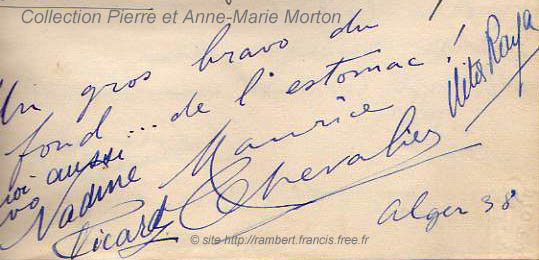 Collection Pierre et Anne-Marie Morton
Un gros bravo du
fond... de l'estomac !
Maurice
Chevalier
moi aussi
Nadine
Picard
Nita Raya
Alger 38
© site http://rambert.francis.free.fr